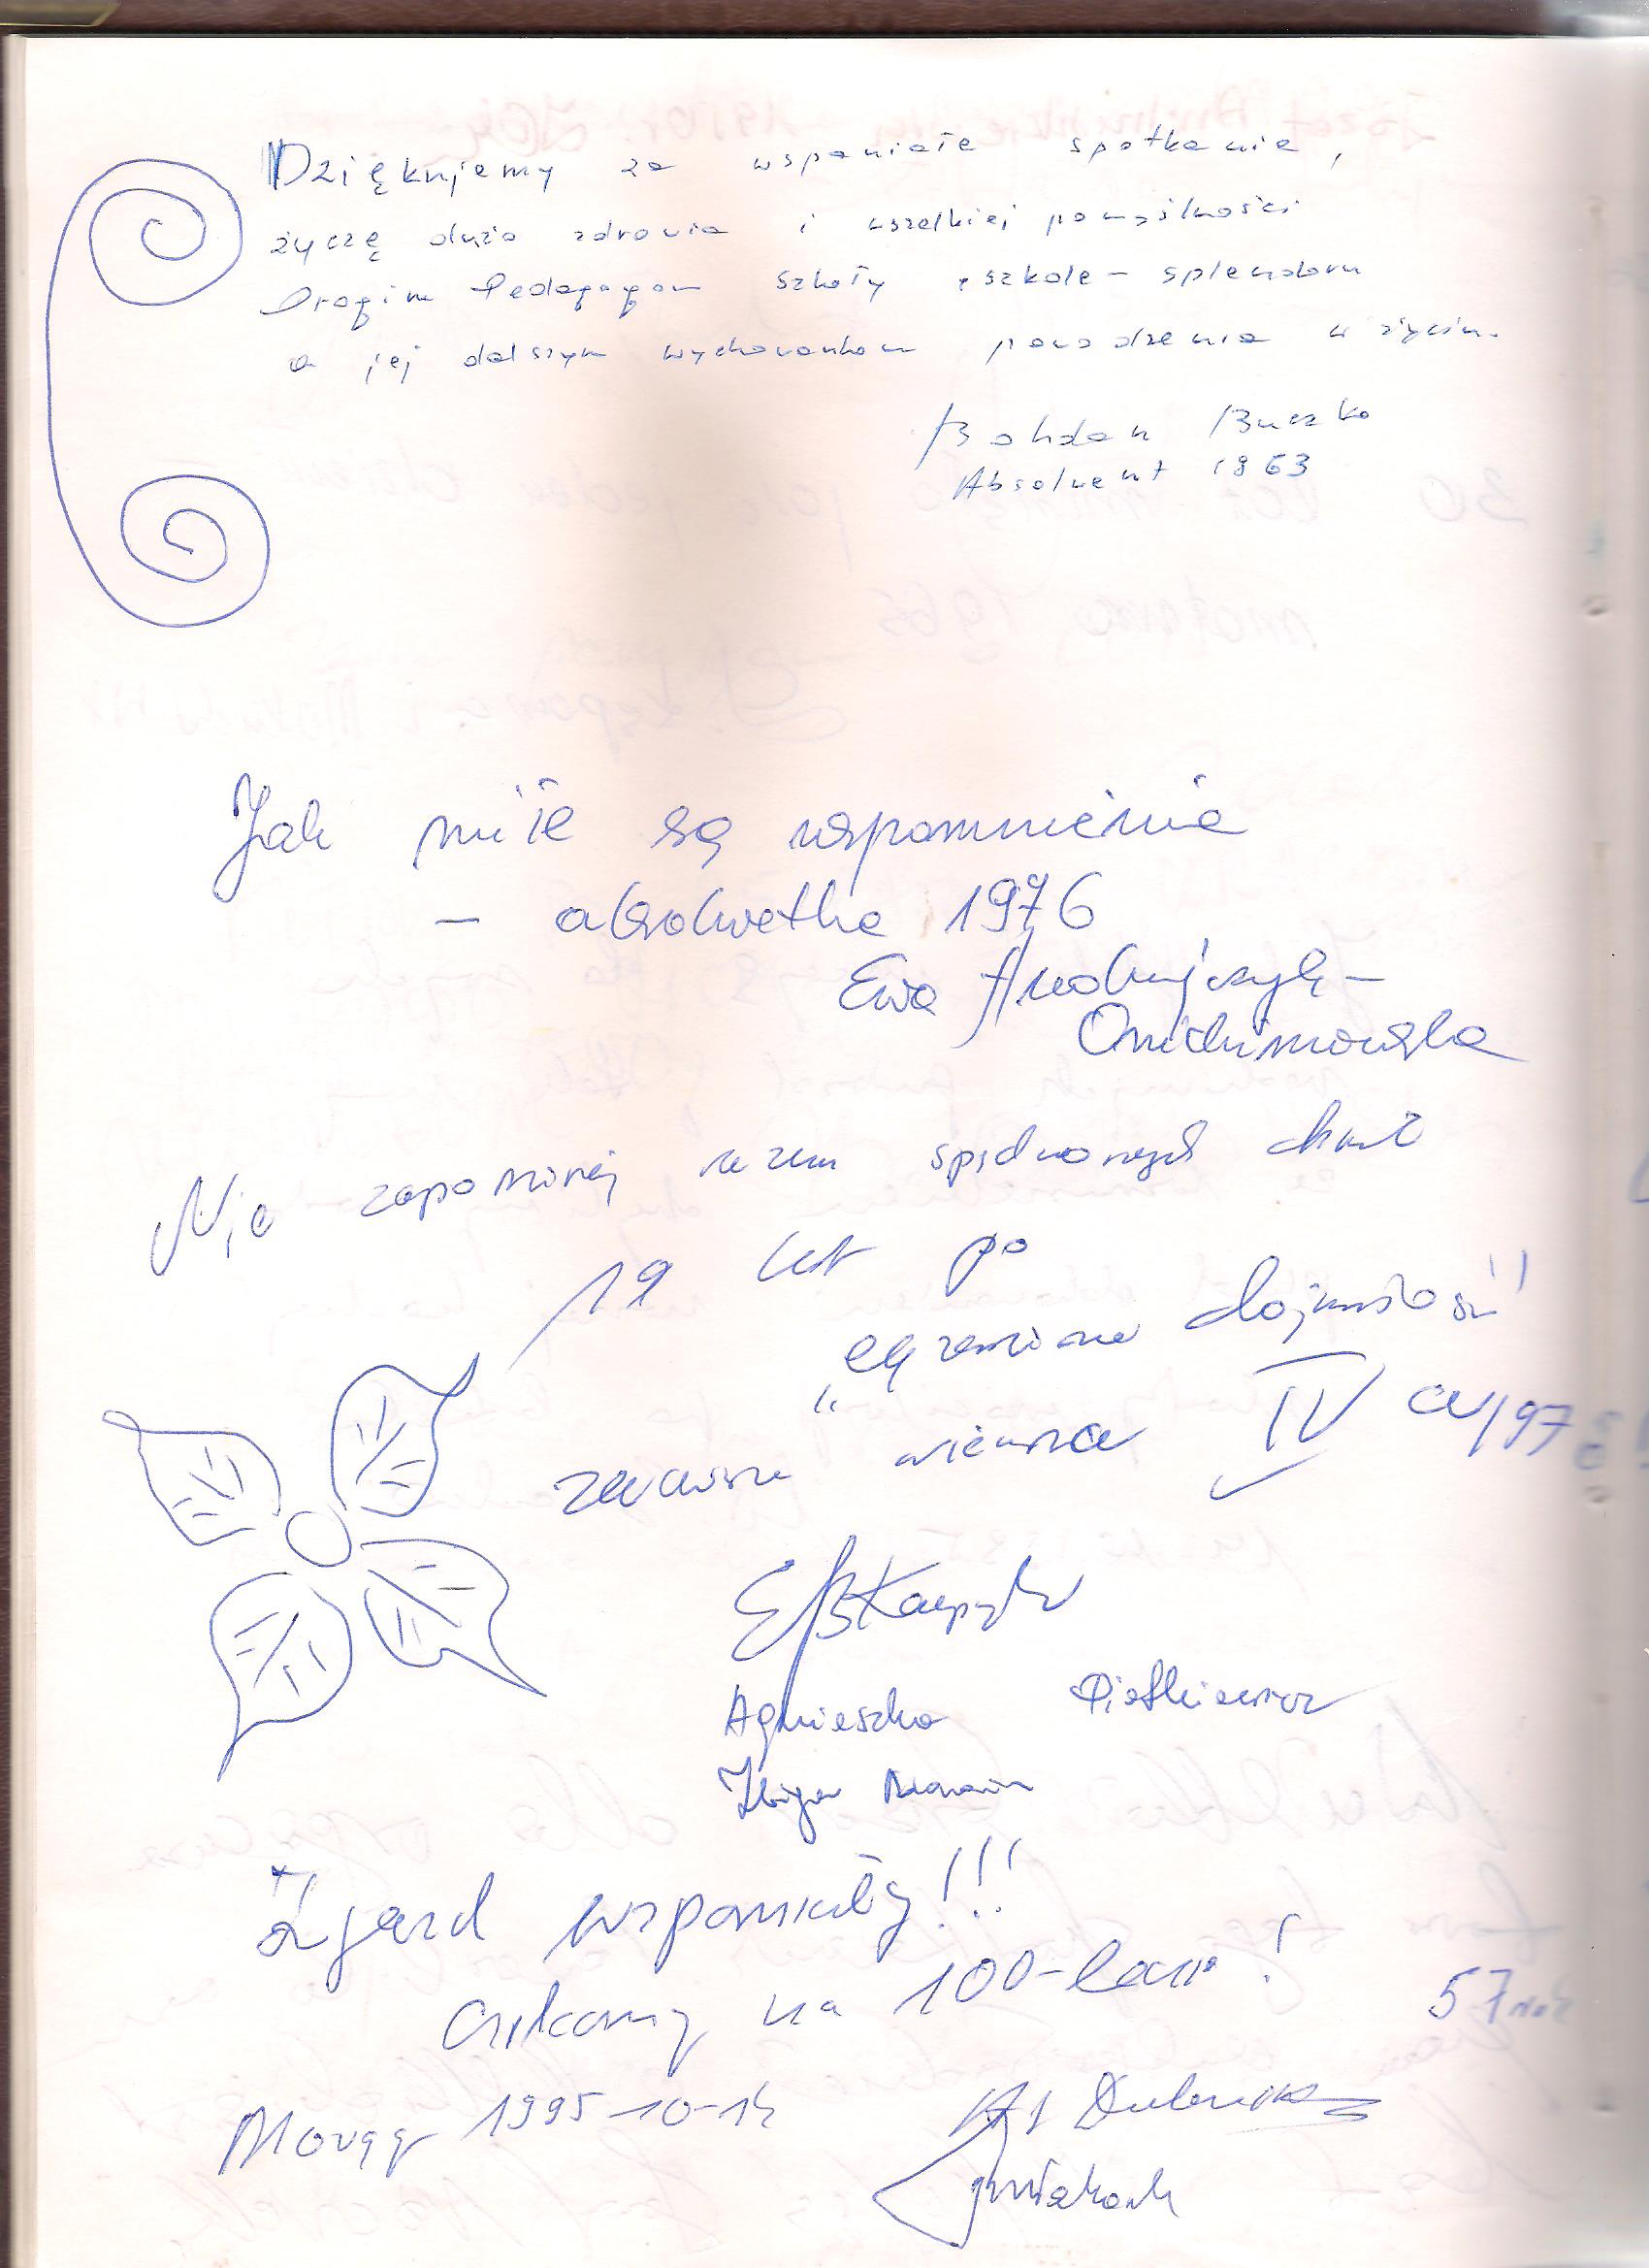 Dziękujemy za wspaniałe spotkanie,
życzę dużo zdrowia i wszelkiej pomyślności
Drogim Pedagogom szkoły, szkole – splendoru
a jej dalszym wychowankom powodzenia w życiu.
Bohdan Buczko
Absolwent 1963
Jak miłe są wspomnienia
– absolwetka 1976
Ewa
Nie zapomnij razem spędzonych chwil
19 lat po
"egzaminie dojrzałości"
zawsze wierna IV
Agnieszka Pietkiewicz
Zjazd wspaniały!!!
Czekamy na 100-lecie!
57 rok
Morąg 1995-10-14